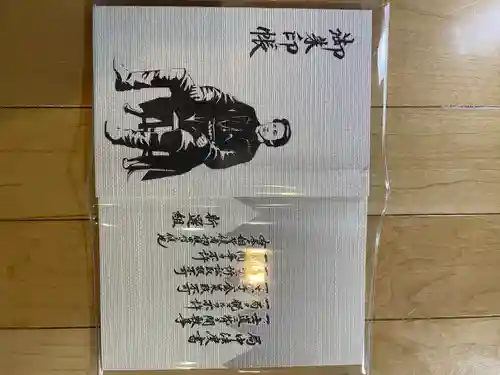 御朱印帳
局中法度書
一士道ニ背キ間敷事
一局ヲ脱スルヲ不許
一勝手ニ金策致不可
一勝手ニ訴訟取扱不可
一私ノ闘争ヲ不許
新選組